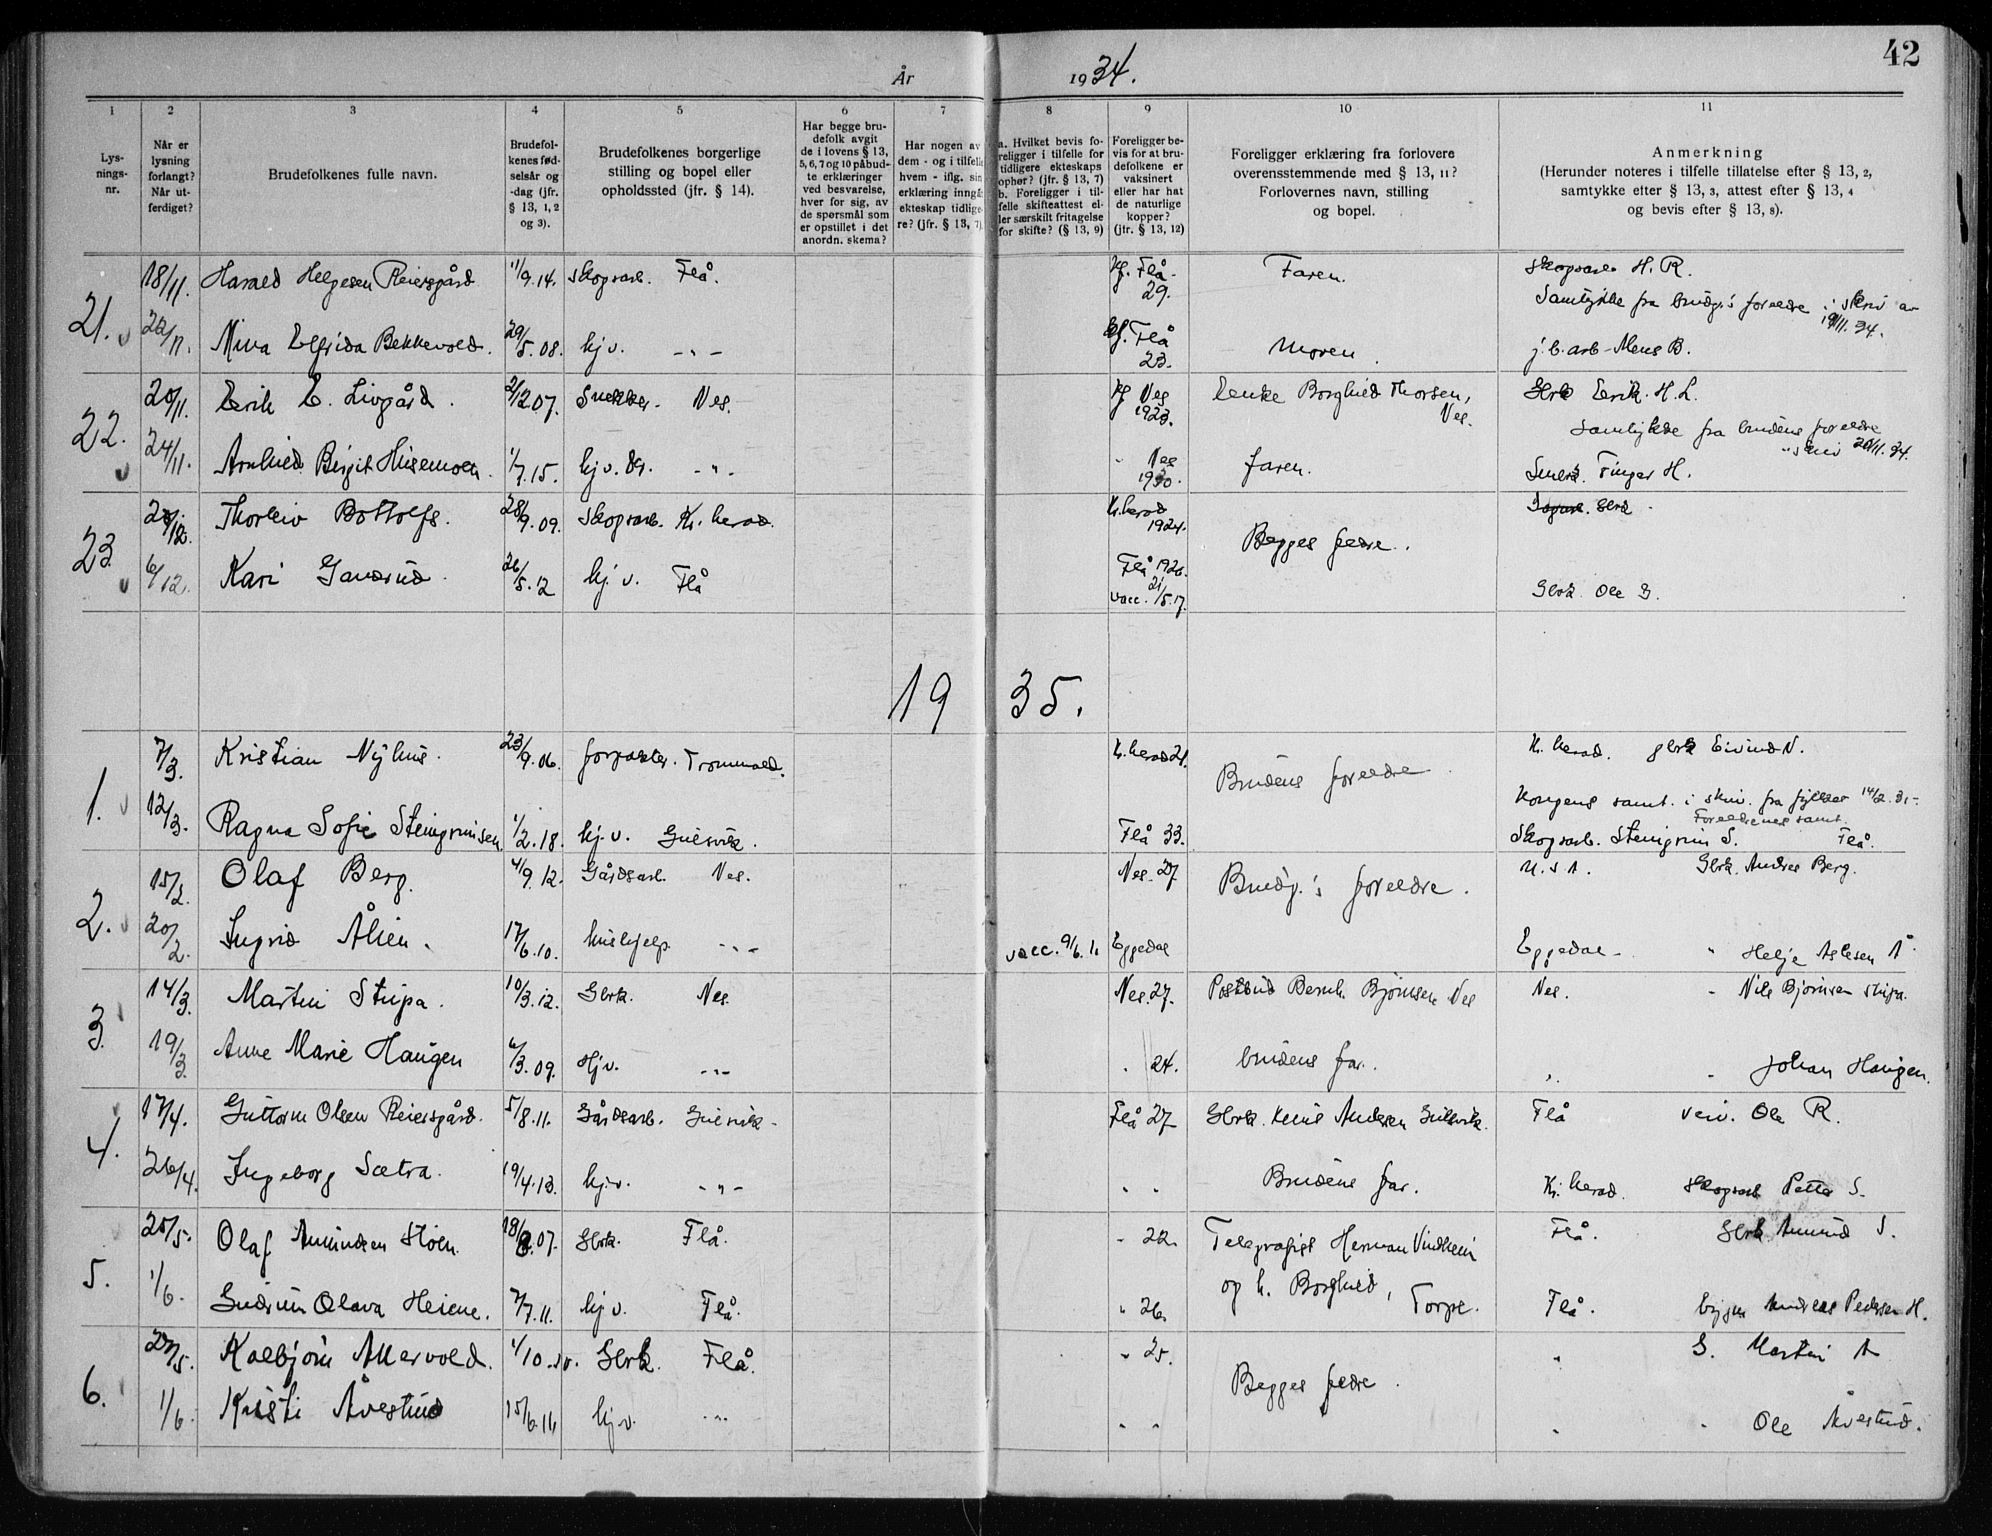 42
År 1934.
1 2 3 4 5 6 7 8 9 10 11
Lys-
nings-
nr.
Når er
lysning
forlangt?
Når ut-
ferdiget?
Brudefolkenes fulle navn.
Brudefol-
kenes fød-
selsår og
-dag (jfr.
§ 13, 1, 2
og 3).
Brudefolkenes borgerlige
stilling og bopel eller
opholdssted (jfr. § 14).
Har begge bru-
defolk avgit
de i lovens § 13,
5, 6, 7 og 10 påbud-
te erklæringer
ved besvarelse,
hver for sig, av
de spørsmål som
er opstillet i det
anordn. skema?
Har nogen av
dem - og i tilfelle
hvem - iflg. sin
erklæring inngå
ekteskap tidlige-
re? (jfr. § 13, 7)
a. Hvilket bevis fo-
religger i tilfelle for
tidligere ekteskaps
ophør? (jfr. § 13, 7)
b. Foreligger i til-
felle skifteattest el-
ler særskilt fritagelse
for skifte? (§ 13, 9)
Foreligger be-
vis for at bru-
defolkene er
vaksinert
eller har hat
de naturlige
kopper?
(jfr. § 13, 12)
Foreligger erklæring fra forlovere
overensstemmende med § 13, 11?
Forlovernes navn, stilling
og bopel.
Anmerkning
(Herunder noteres i tilfelle tillatelse efter § 13, 2,
samtykke efter § 13, 3, attest efter § 13, 4
og bevis efter § 13, 8).
21. 18/11. Harald Helgesen Reiersgård 11/9.14. Skogsarb. Flå. Flå. 29. Faren. Skogsarb. H. R.
Samtykke fra brudg.'s foreldre i skriv av 19/11. 34.
Nina Elfrida Bekkevold. 29/5.08. hj.v. -"- Flå 23. Moren. j.b.arb. B.
22. 20/11. Erik E. Livgård. 2/12 07. Snekker. Ves. Nes 1923. Lenke Borghild Thorsen, Nes. Gbrk Erik. H. L.
Samtykke fra brudens foreldre i skriv 20/11. 34.
24/11. Arnhild Birgit Husemoen. 1/7.15. hj.v. -"- Nes 1930. faren. H.
23. Thorleiv Bottolfs. 28/9.09. Skogsarb. Kr. herad. Kr. herad 1924. Begges fedre. Gbrk
6/12. Kari Gandrud. 26/5.12 hj.v. Flå Flå 1926. vacc. 21/5.17. Gbrk. Ole G.
1935.
1. 7/3. Kristian Nyhus. 23/9.06. forpakter. Trommald. Kr. herad 21. Brudens foreldre. Kr. herad. gbrk Eivind N.
12/3. Ragna Sofie Steingrimsen 1/2.18. hj.v. Gulsvik. Flå 33. Kongens samt. i skriv. fra fylket 14/2.
Foreldrenes samt.
Skogsarb. Steingrim S. Flå.
2. 15/2. Olaf Berg. 4/9.12. Gårdsarb. Nes. Nes. 27. Brudg.'s foreldre. U.S.A. Gbrk. Andres Berg.
20/2. Ingrid Ålien. 17/6.10. hushjelp. -"- vacc. 9/6.11 Eggedal Eggedal - " Helje Aslesen Å.
3. 14/3. Martin Stupa. 10/3.12. Gbrk. Nes. Nes. 27. Postbud Bernh. Bjørnsen Nes Nes. " Nils Bjørnsen Stupa.
19/3. Anne Marie Haugen 6/3.09. Hj.v. -"- " 24. brudens far. " " Johan Haugen.
4. 17/4. Guttorm Olsen Reiersgård. 5/8.11. Gårdsarb. Gulsvik - Flå 27 Gbrk. Knut Andersen Gulsvik. Flå Ole R.
26/4. Ingeborg Sætra. 19/4.13. hj.v. -"- " " Brudens far. Kr. herad. Skogsarb Petter S.
5. 25/5. Olaf Amundsen Støen. 18/ .07. Gbrk. Flå. " 22. Telegrafist Herman Vindheim Flå. Gbrk Amund S.
1/6. Gudrun Olava Heiene. 7/7.11. hj.v. Flå. " 26. og h. Borghild, Torpe. Flå. bygsm Andreas Pedersen H.
6. 27/5. Kolbjørn Allervold. 1/10. Gbrk. Flå. " 25. Begges fedre. " G. Martin A
1/6. Kristi Åvestrud 15/6.16 hj.v. -"- " " " " Ole Åvestrud.